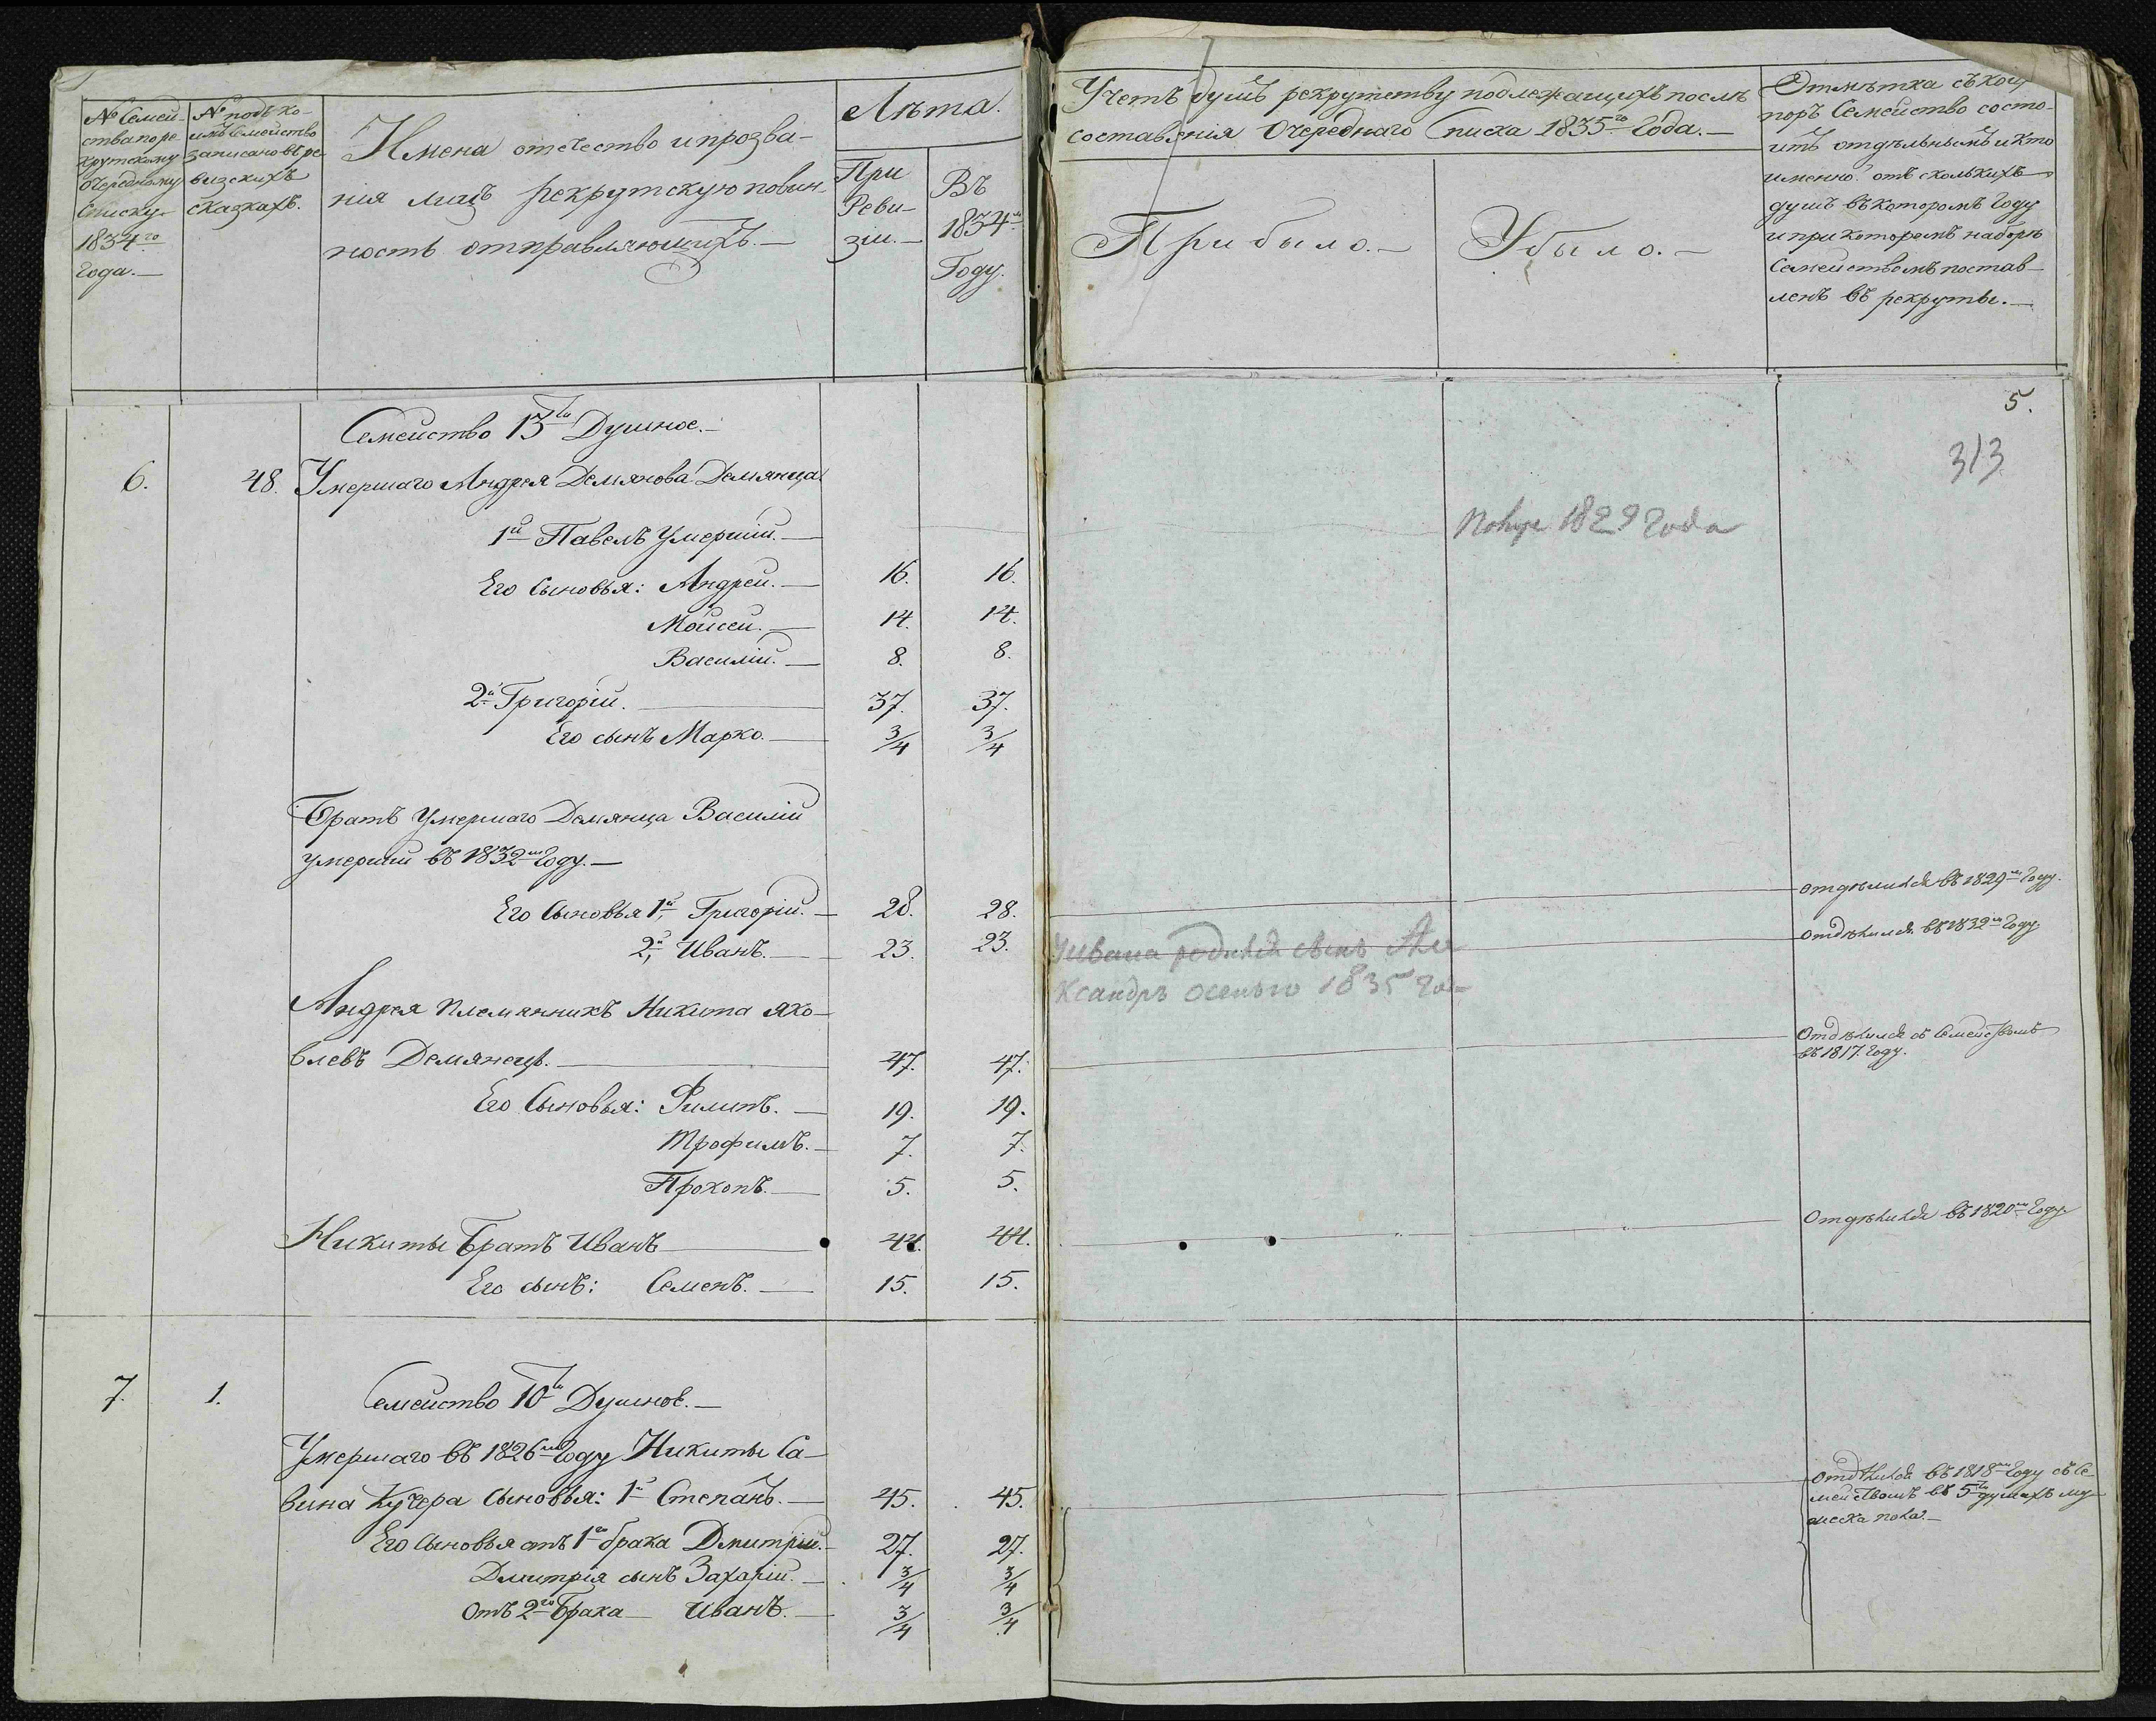 № Семей-
ства по ре
крутскому
очередному
списку
1834го
года.—
№ подъ ко-
имъ Семейство
записано въ ре
визскихъ
сказкахъ.
Имена отечество и прозва-
нія лицъ рекрутскую повин-
ность отправляющихъ.—
Лѣта.
При
Реви-
зіи.—
Въ
1834м
Году.
Учетъ душъ рекрутству подлежащихъ послѣ
составленія Очереднаго Списка 1835го Года.—
Прибыло.—
Убыло.—
Отмѣтка съ кои
поръ Семейство состо-
итъ отдѣльнымъ и кто
именно отъ сколькихъ
душъ въ которомъ Году
и при которомъ наборѣ
Семействомъ постав-
ленъ въ рекруты.—
5.
313
Семейство 13ти Душное.—
6. 48. Умершаго Андрея Демянова Демянца
1й Павелъ Умершій.—
Его Сыновья: Андрей.— 16. 16.
Моисей.— 14. 14.
Василій.— 8. 8.
2й Григорій. 37. 37.
Его сынъ Марко.— 3/4 3/4
1829 года
Братъ Умершаго Демянца Василій
умершій въ 1832м Году.—
Его Сыновья 1й, Григорій.— 28. 28. отделился въ 1829м Году.
2й, Иванъ.— 23. 23. Отдѣлился въ 1832м Году
У Ивана родился сынъ Але
ксандръ осенью 1835 го
Андрея племянникъ Никита Яко-
влевъ Демянецъ.— 47. 47. Отдѣлился съ Семействомъ
въ 1817. Году.
Его Сыновья: Филипъ.— 19. 19.
Трофимъ.— 7. 7.
Прокопъ.— 5. 5.
Никиты Братъ Иванъ 44. 44. Отдѣлился въ 1820м Году
Его сынъ: Семенъ.— 15. 15.
7. 1. Семейство 10ти Душное.—
Умершаго въ 1826м Году Никиты Са-
вина Кучера Сыновья: 1й Степанъ.— 45. 45.
Его Сыновья отъ 1го брака Дмитрій.— 27. 27.
Дмитрія сынъ Захарій.— 3/4 3/4
Отъ 2го Брака— Иванъ.— 3/4 3/4
Отдѣлился въ 1818м Году съ Се-
мействомъ въ 5ти душахъ му-
жеска пола.—